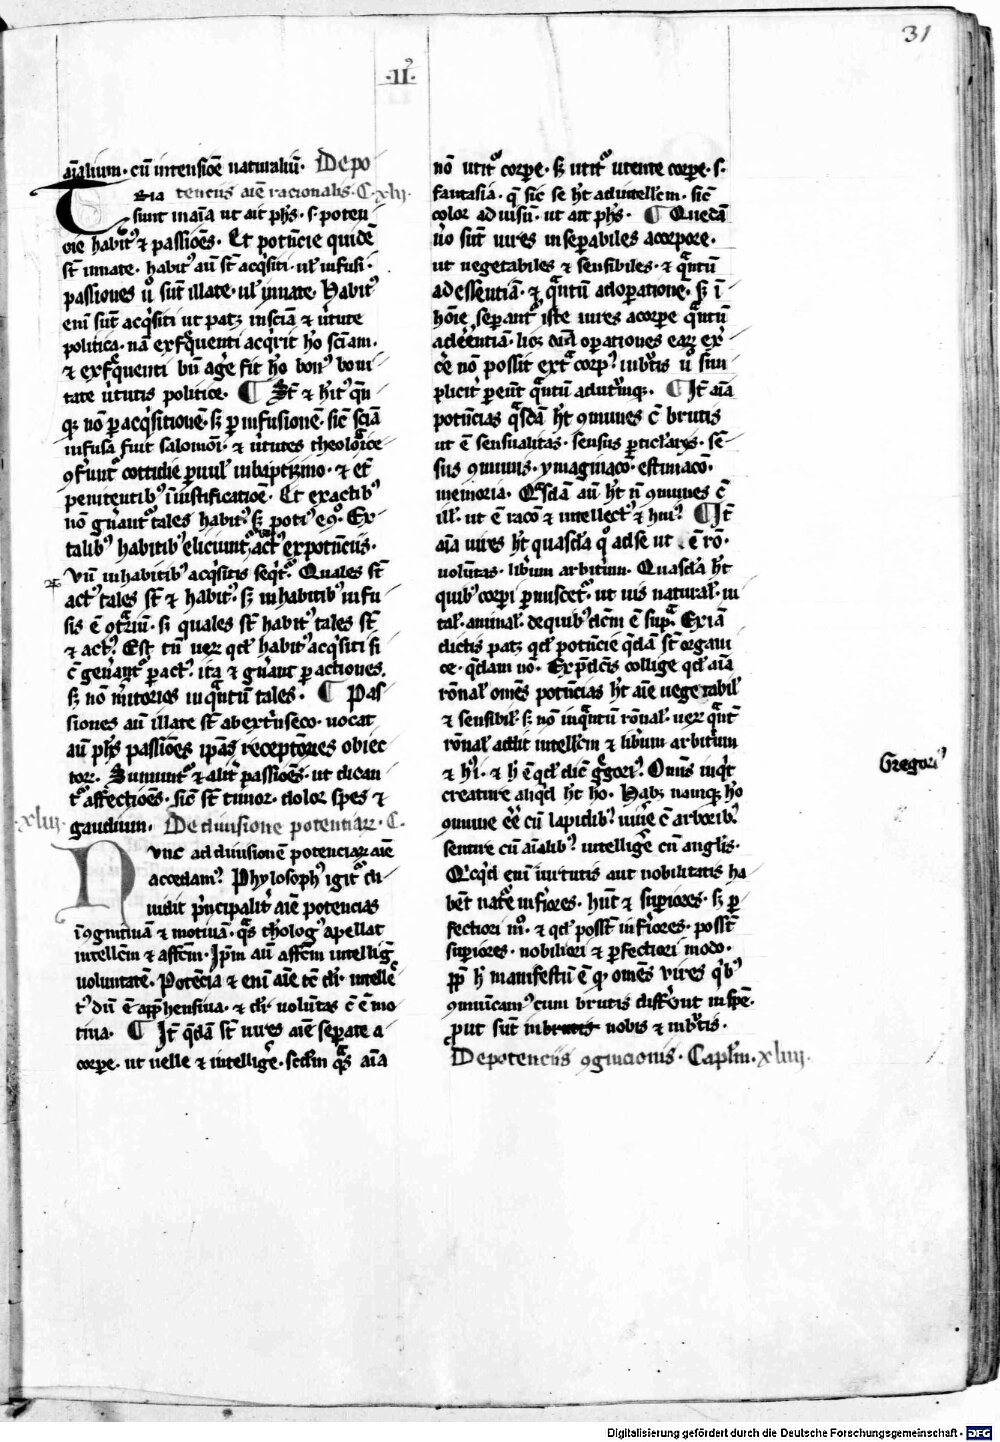 31
·II·
aīalium · cū intensiōe naturaliū · De po
Ria tenciis aīe racionalis · C · xlii ·
Tsunt in aīa ut ait ph̄s · s · poten
cie habit⁹ ⁊ passiōes · Et potn̄cie quidē
st̄ innate · habit⁹ aū st̄ acq̄siti · ul᷑ infusi ·
passiones u̾o sūt illate · ul᷑ innate · Habit⁹
enī sūt acq̄siti ut patꝫ in sciā ⁊ u̾tute
politica · nā ex fr̄quenti acq̄rit ho sciam ·
⁊ ex fr̄quenti bn̄ age̾ fit ho bon⁹ boni
tate u̾tutis politice · ¶ St̄ ⁊ hīt⁹ qn̄
qꝫ nō ꝑ acq̄sitionē · sꝫ ꝑ infusionē · sic̄ sciā
infusa fuit salomōi · ⁊ u̾tutes theoloᵍice
ꝯfūnt᷑ cottidie ꝑuul᷑ in baptizmo · ⁊ et̄
penitentib⁹ ī iustificatiōe · Et ex actib⁹
nō gn̄ant᷑ tales habit⁹ · sꝫ poti⁹ eꝯ° · Ex
talib⁹ habitib⁹ eliciunt᷑ act⁹ ex potn̄ciis ·
Vn̄ in habitib⁹ acq̄sitis seq̄t᷑ · Quales st̄
act⁹ tales st̄ ⁊ habit⁹ · sꝫ in habitib⁹ infu
sis ē ꝯtͣriū · sꝫ quales st̄ habit⁹ tales st̄
⁊ act⁹ · Est tn̄ uer̄ qd̄ habit⁹ acq̄siti si
c̄ gen̾ant᷑ ꝑ act⁹ · ita ⁊ gn̄ant᷑ ꝑ actiones ·
sꝫ nō m̾itorios inqͣntū tales · ¶ Pas
siones aū illate st̄ ab extn̾seco · uocat
aū ph̄s passiōes ip̄as receptōnes obiec
toꝝ · Sumunt᷑ ⁊ alit̾ passiōes · ut dican
t᷑ affectiōes · sic̄ st̄ timor · dolor spes ⁊
gaudium · De diuisione potentiaꝝ · C ·
xliii ·
Nvnc ad diuisionē potenciaꝝ aīe
accedam⁹ · Phylosoph⁹ igit᷑ di
uidit pͥncipalit̾ aīe potencias
ī ꝯgnitiuā ⁊ motiuā · qͣs theolog⁹ apellat
intellc̄m ⁊ affc̄m · Ip̄m aū affc̄m intelligē
uoluntatē · Potēcia ⁊ enī aīe tc̄ dr̄ · intelle
t⁹ dū ē app̄hensiua · ⁊ dr̄ uolūtas c̄ ē mo
tiua · ¶ It̄ qͥdā st̄ uires aīe seperate a
corpe · ut uelle ⁊ intellige̾ · scd̄m qͣs aīa
nō utit᷑ corpe · sꝫ utit᷑ utente corpe · s ·
fantasia · q̄ sic se ht̄ ad intellc̄m · sic̄
color ad uisū · ut ait ph̄s · ¶ Quedā
u̾o sūt uires inseꝑabiles a corpore ·
ut uegetabiles ⁊ sensibiles · ⁊ qͣntū
ad essentiā · ⁊ qͣntū ad oꝑatione · sꝫ ī
hoīe seꝑant᷑ iste uires a corpe qͣntū
ad ēēntiā · licꝫ oīa operationes eaꝝ ex̾
ce̾ nō possit ext᷑ corp⁹ · in brutis u̾o sim
plicit̾ pe̾ūt qͣntū ad utrūqꝫ · ¶ It̄ aīa
potn̄cias qͣsdā ht̄ ꝯmunes c̄ brutis
ut ē sensualitas · sensus ꝑticl̄ares · sē
sus ꝯmunis · ymaginacō · estimacō ·
memoria · Qͣsdā aū ht̄ nō ꝯmunes c̄
ill᷑ · ut ē racō ⁊ intellect⁹ ⁊ hui⁹ · ¶ It̄
aīa uires ht̄ quasdā qͦ ad se ut ē rō ·
uolūtas · lib̾um arbitm̄ · Quasdā ht̄
quib⁹ corpi ꝑmiscet᷑ · ut uis natural᷑ · ui
tal᷑ · animal᷑ · de quib⁹ dc̄m ē supͣ · Ex iā
dictis patꝫ qd̄ potn̄cie qͥdā st̄ organi
ce · qͥdam nō · Ex p̄dc̄is collige qd̄ aīa
rōnal᷑ omēs potn̄cias ht̄ aīe uegetabil᷑
⁊ sensibil᷑ · sꝫ nō inqͣntū rōnal᷑ · uer̄ qͣnt̄
rōnal᷑ addit intellc̄m ⁊ lib̾um arbitiū
⁊ hī · ⁊ h̄ ē qd̄ dic̄ gͤgori⁹ · Omīs inqͥt
creature aliqͥd ht̄ ho · Habꝫ namqꝫ ho
ꝯmune ēē cū lapidib⁹ · uiue̾ c̄ arborib⁹ ·
sentire cū aīalib⁹ · intellige̾ cū angl̄is ·
Qͥcqͥd enī uirtutis aut nobilitatis ha
bēt nat᷑e inferiores · hn̄t ⁊ suꝑiores · sꝫ ꝑ
fectiori mͦ · ⁊ qd̄ possūt inferiores · possūt
suꝑiores · nobiliori ⁊ ꝑfectiori modo ·
ꝓp̄ h̄ manifestū ē qͥ omēs vires qͥb⁹
ꝯmunicam⁹ cum brutis diffe̾unt in spē ·
ꝓut sūt in brutis nobis ⁊ in brutis ·
De potenciis ꝯgnicionis · Capl̄m · xliiii ·
Gregori⁹